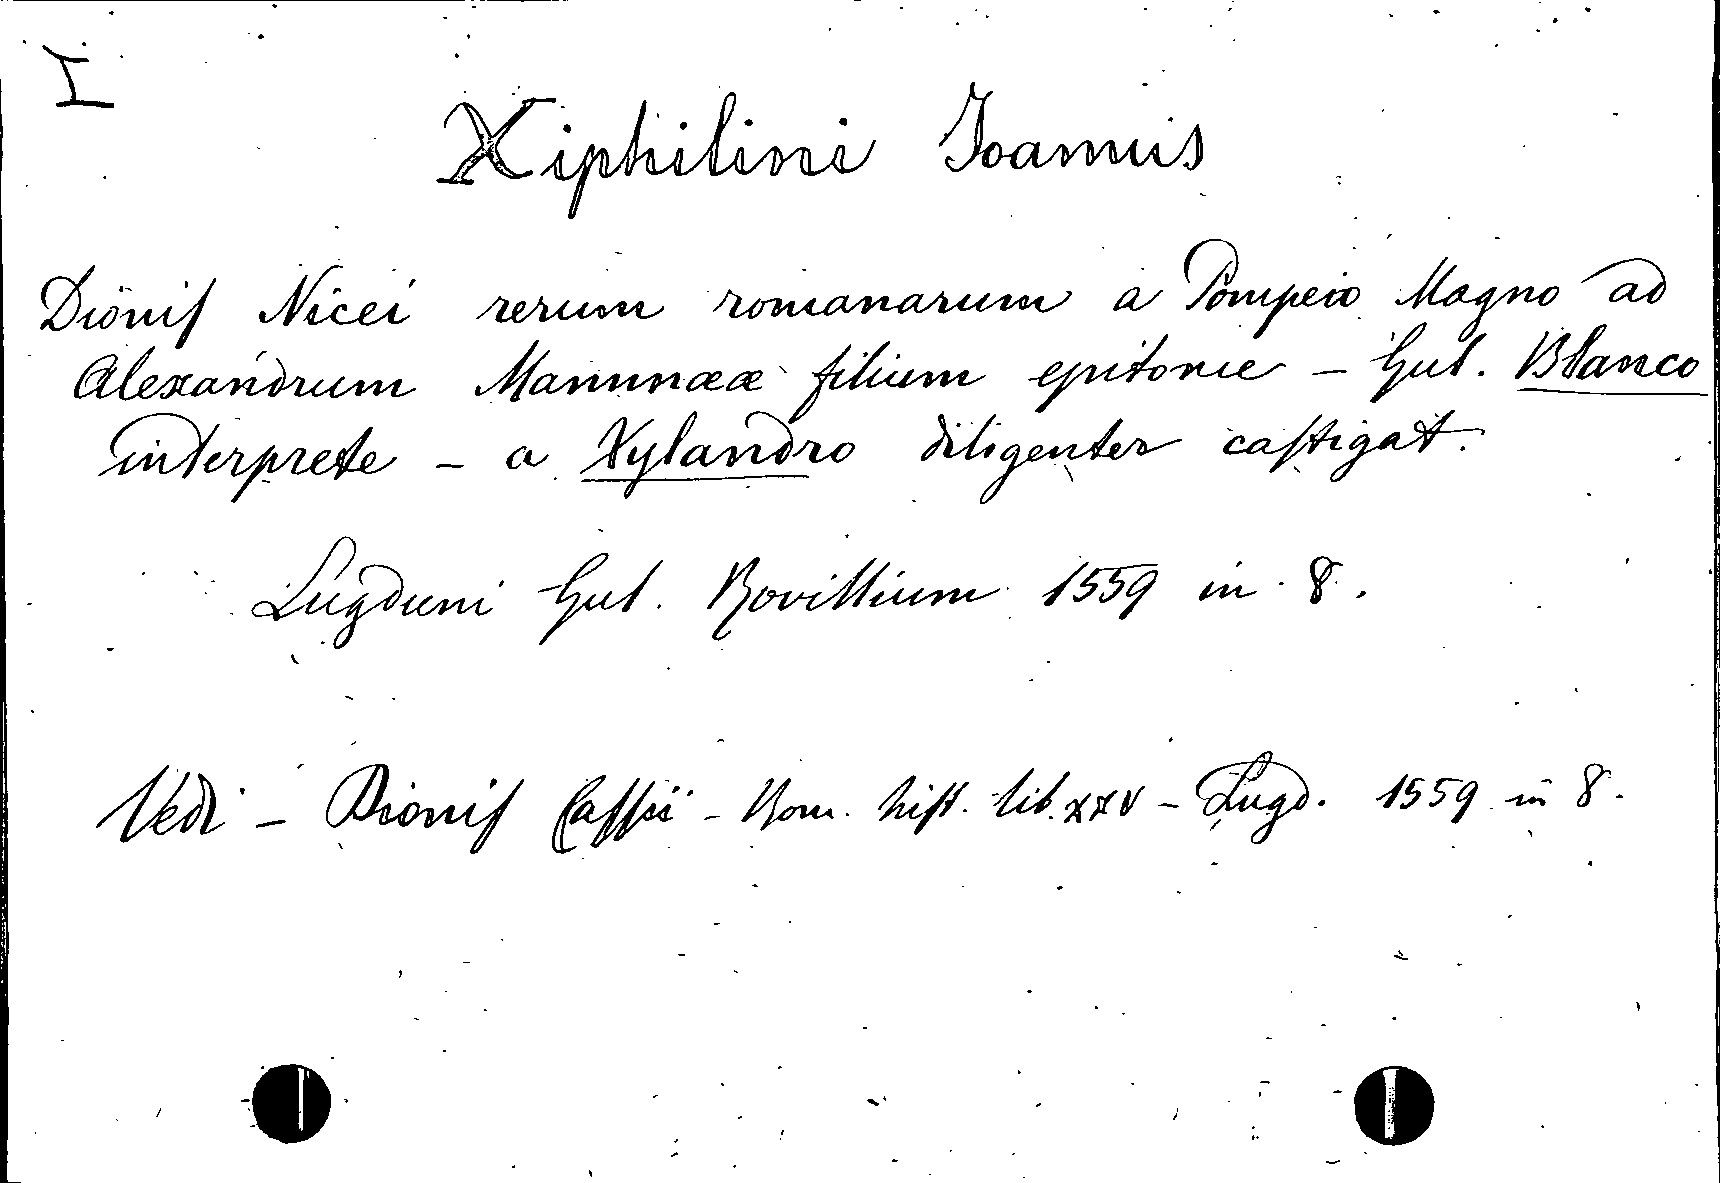 I
Xiphilini Joannis
Dionis Nicei rerum romanarum a Pompeio Magno ad
Alexandrum Mammææ filium epitome - Gul. Blanco
interprete - a Xylandro diligenter castigat.
Lugduni Gul. Rovillium 1559 in 8.
Vedi - Dionis Cassii - Rom. hist. lib. XXV - Lugd. 1559 in 8.